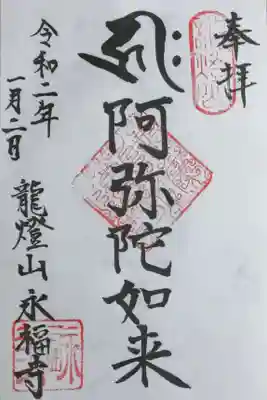 奉拝
阿弥陀如来
令和二年
一月二日
龍燈山 永福寺